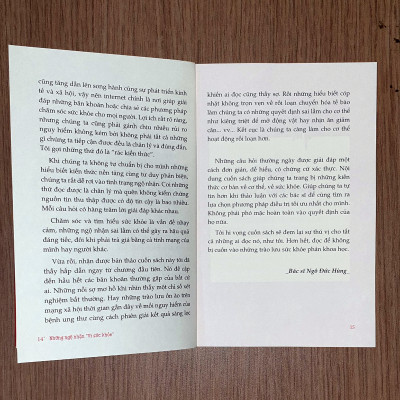 cũng tăng dần lên song hành cùng sự phát triển kinh
tế và xã hội, vậy nên internet chính là nơi giúp giải
đáp những băn khoăn hoặc chia sẻ các phương pháp
chăm sóc sức khỏe cho mọi người. Lợi ích rất rõ ràng,
nhưng chúng ta cũng phải gánh chịu nhiều rủi ro
nguy hiểm không kém bởi không phải tất cả những
gì chúng ta tiếp cận được đều là chân lý và đúng đắn.
Tôi gọi những thứ đó là "rác kiến thức".
Khi chúng ta không tự chuẩn bị cho mình những
hiểu biết kiến thức nền tảng cùng tư duy phản biện,
chúng ta rất dễ rơi vào tình trạng ngộ nhận. Coi những
thứ đọc được là chân lý mà quên kiểm chứng
nguồn tin thu thập được có độ tin cậy là bao nhiêu.
Mỗi câu hỏi có hàng trăm lời giải đáp khác nhau.
Chăm sóc và tìm hiểu sức khỏe là vấn đề nhạy
cảm, những ngộ nhận sai lầm có thể gây ra hậu quả
đáng tiếc, đôi khi phải trả giá bằng cả tính mạng của
mình hay người khác.
Vừa rồi, nhận được bản thảo cuốn sách này tôi đã
thấy hấp dẫn ngay từ chương đầu tiên. Nó đề cập
đến hầu hết các băn khoăn thường gặp của bất cứ
ai. Những nỗi sợ mơ hồ khi nhìn thấy một chỉ số xét
nghiệm bất thường. Hay những trào lưu ồn ào trên
mạng xã hội thời gian gần đây về mối nguy hiểm của
bệnh ung thư cùng cách phiên giải kết quả sàng lọc
14 Những ngộ nhận "Vì sức khỏe"
khiến ai đọc cũng thấy sợ. Rồi những hiểu biết cóp
nhặt không trọn vẹn về rối loạn chuyển hóa tế bào
làm chúng ta có những quyết định sai lầm cho cơ thể
như kiêng triệt để mỡ động vật hay nhịn ăn giảm
cân... vv... Kết cục là chúng ta càng làm cho cơ thể
hoạt động rối loạn hơn.
Những câu hỏi thường ngày được giải đáp một
cách đơn giản, dễ hiểu, có chứng cứ xác thực. Nội
dung cuốn sách giúp chúng ta trang bị những kiến
thức cơ bản về cơ thể, về sức khỏe. Giúp chúng ta tự
tin hơn khi thảo luận với các bác sĩ để cùng tìm ra
lựa chọn phương pháp điều trị tối ưu nhất cho mình.
Không phải phó mặc hoàn toàn vào quyết định của
họ nữa.
Tôi hi vọng cuốn sách sẽ đem lại sự thú vị cho tất
cả những ai đọc nó, như tôi. Hơn hết, đọc để không
bị cuốn vào những trào lưu sức khỏe phản khoa học.
_Bác sĩ Ngô Đức Hùng_